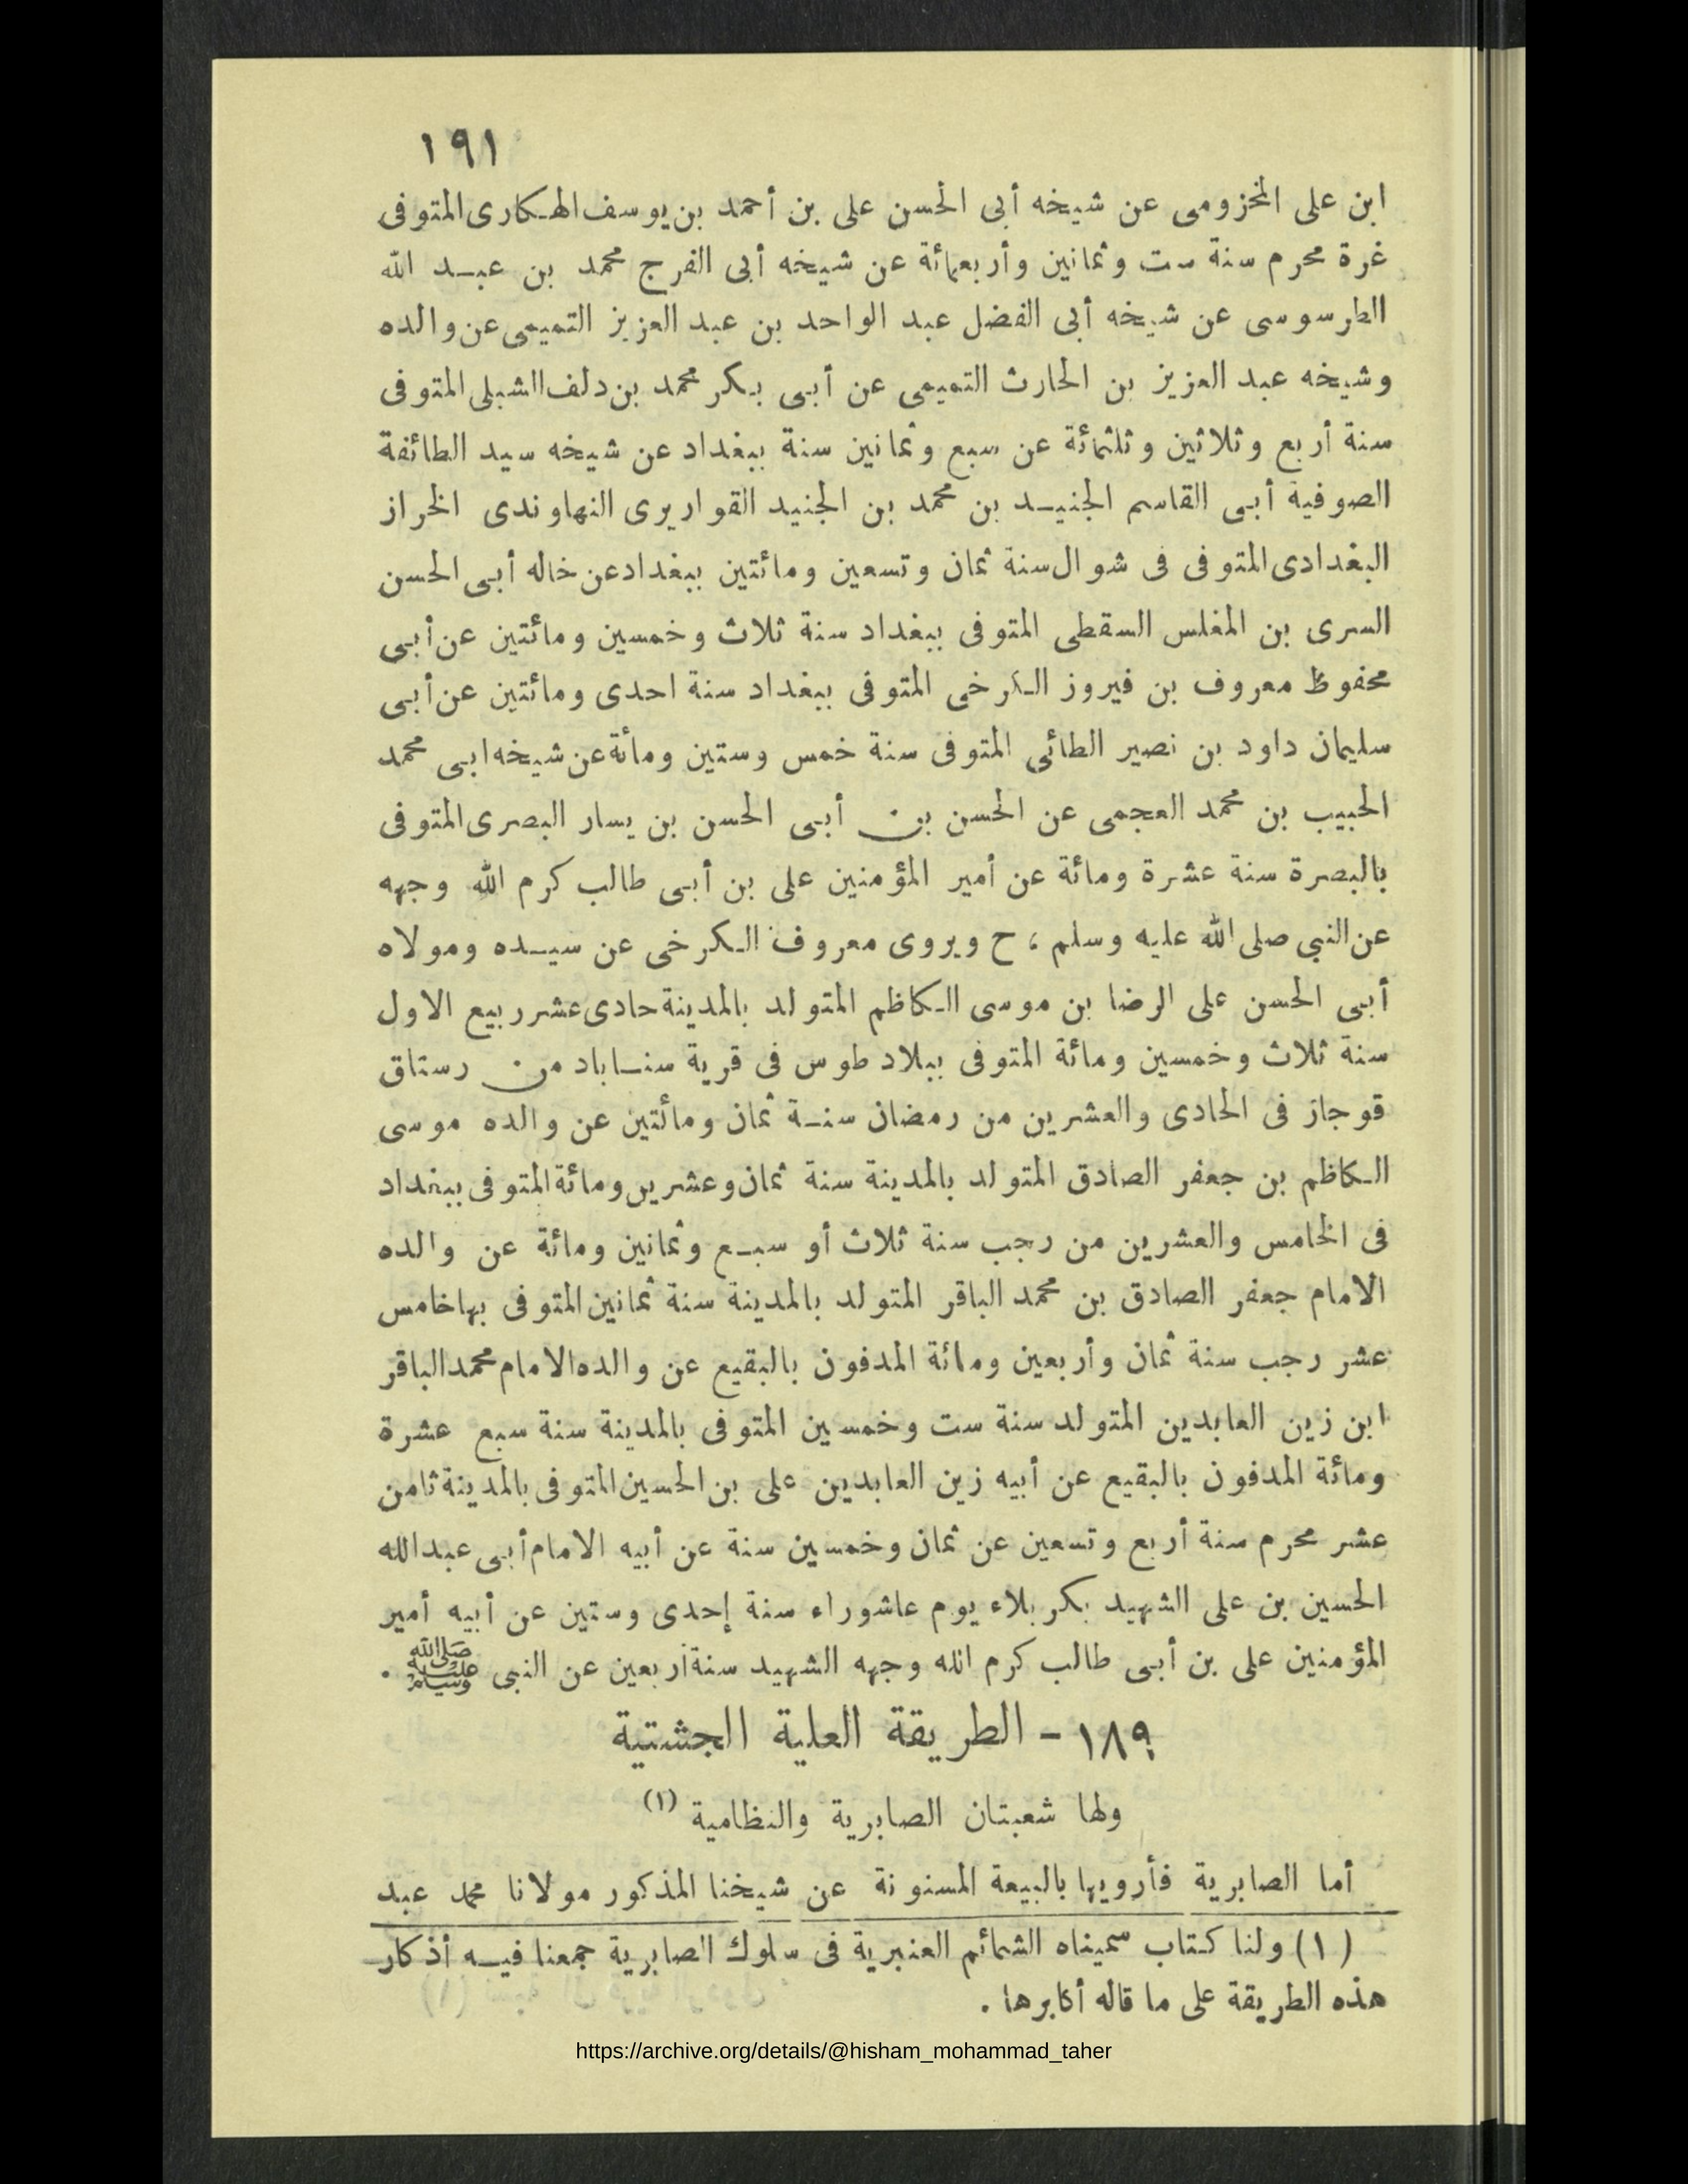 ١٩١
ابن على المخزومى عن شيخه أبى الحسن على بن أحمد بن يوسف الهكارى المتوفى
غرة محرم سنة ست وثمانين وأربعمائة عن شيخه أبى الفرج محمد بن عبد الله
الطرسوسى عن شيخه أبى الفضل عبد الواحد بن عبد العزيز التميمى عن والده
وشيخه عبد العزيز بن الحارث التميمى عن أبى بكر محمد بن دلف الشبلى المتوفى
سنة أربع وثلاثين وثلثمائة عن سبع وثمانين سنة ببغداد عن شيخه سيد الطائفة
الصوفية أبى القاسم الجنيد بن محمد بن الجنيد القواريرى النهاوندى الخراز
البغدادى المتوفى فى شوال سنة ثمان وتسعين ومائتين ببغداد عن خاله أبى الحسن
السرى بن المغلس السقطى المتوفى ببغداد سنة ثلاث وخمسين ومائتين عن أبى
محفوظ معروف بن فيروز الكرخى المتوفى ببغداد سنة احدى ومائتين عن أبى
سليمان داود بن نصير الطائى المتوفى سنة خمس وستين ومائة عن شيخه ابى محمد
الحبيب بن محمد العجمى عن الحسن بن أبى الحسن بن يسار البصرى المتوفى
بالبصرة سنة عشرة ومائة عن أمير المؤمنين على بن أبى طالب كرم الله وجهه
عن النبى صلى الله عليه وسلم ، ح ويروى معروف الكرخى عن سيده ومولاه
أبى الحسن على الرضا بن موسى الكاظم المتولد بالمدينة حادى عشر ربيع الاول
سنة ثلاث وخمسين ومائة المتوفى ببلاد طوس فى قرية سناباد من رستاق
قوجاز فى الحادى والعشرين من رمضان سنة ثمان ومائتين عن والده موسى
الكاظم بن جعفر الصادق المتولد بالمدينة سنة ثمان وعشرين ومائة المتوفى ببغداد
فى الخامس والعشرين من رجب سنة ثلاث أو سبع وثمانين ومائة عن والده
الامام جعفر الصادق بن محمد الباقر المتولد بالمدينة سنة ثمانين المتوفى بها خامس
عشر رجب سنة ثمان وأربعين ومائة المدفون بالبقيع عن والده الامام محمد الباقر
ابن زين العابدين المتولد سنة ست وخمسين المتوفى بالمدينة سنة سبع عشرة
ومائة المدفون بالبقيع عن أبيه زين العابدين على بن الحسين المتوفى بالمدينة ثامن
عشر محرم سنة أربع وتسعين عن ثمان وخمسين سنة عن أبيه الامام أبى عبدالله
الحسين بن على الشهيد بكربلاء يوم عاشوراء سنة إحدى وستين عن أبيه أمير
المؤمنين على بن أبى طالب كرم الله وجهه الشهيد سنة أربعين عن النبى ﷺ .
١٨٩ - الطريقة العلية الجشتية
ولها شعبتان الصابرية والنظامية (١)
أما الصابرية فأرويها بالبيعة المسنونة عن شيخنا المذكور مولانا محمد عبد
(١) ولنا كتاب سميناه الشمائم العنبرية فى سلوك الصابرية جمعنا فيه أذكار
هذه الطريقة على ما قاله أكابرها .
https://archive.org/details/@hisham_mohammad_taher